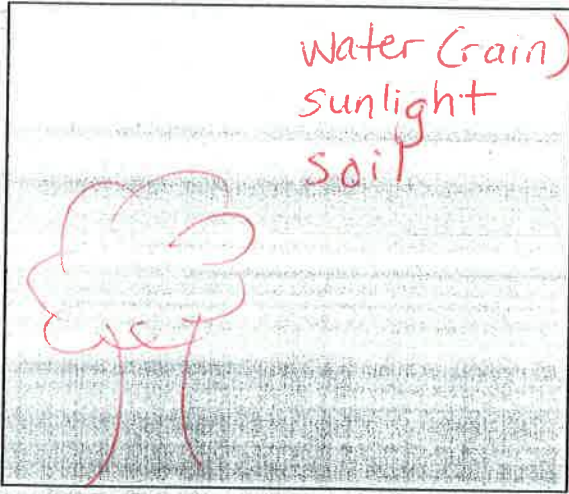 water (rain)
sunlight
soil